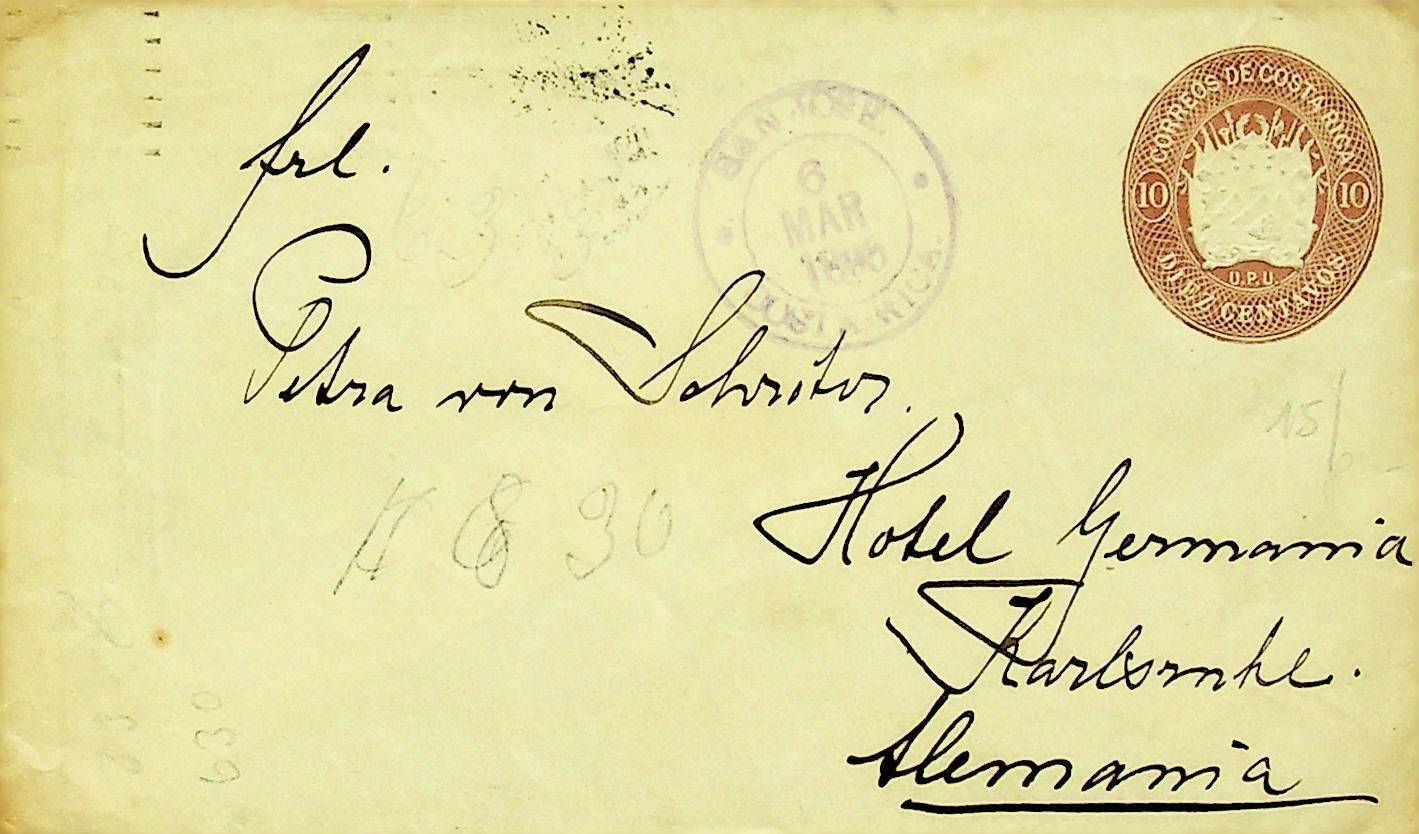 CORREOS DE COSTA RICA
10 10
U.P.U.
DIEZ CENTAVOS
SAN JOSE.
6
MAR
COSTA-RICA.
frl.
Petra von Schröter.
15/
H 8 30
Hotel Germania
Karlsruhe.
Alemania
630